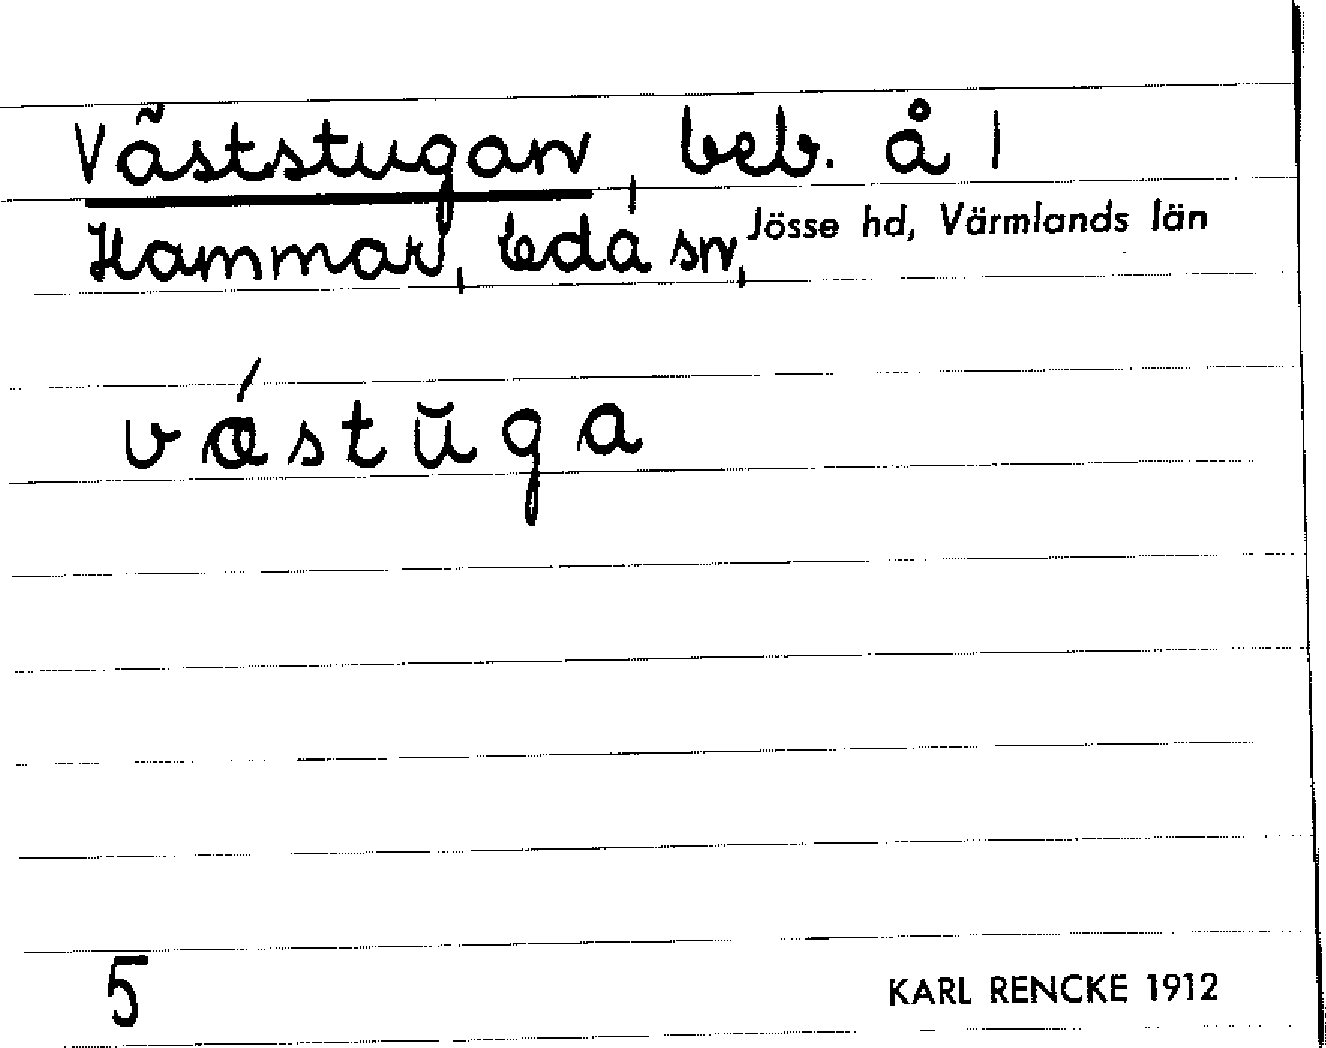 Väststugan, beb. å 1
Hammar, Eda sn, Jösse hd, Värmlands län
vǿstŭga
5
KARL RENCKE 1912